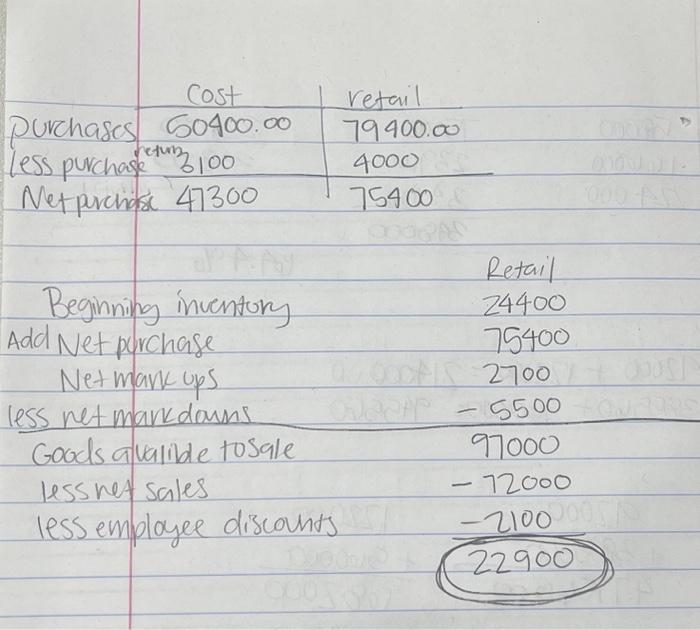 Cost retail
purchases 50400.00 79400.00
less purchase return 3100 4000
Net purchase 47300 75400
Retail
Beginning inventory 24400
Add Net purchase 75400
Net mark ups 2700
less net markdowns - 5500
Goods avalible to sale 97000
less net sales - 72000
less employee discounts - 2100
22900